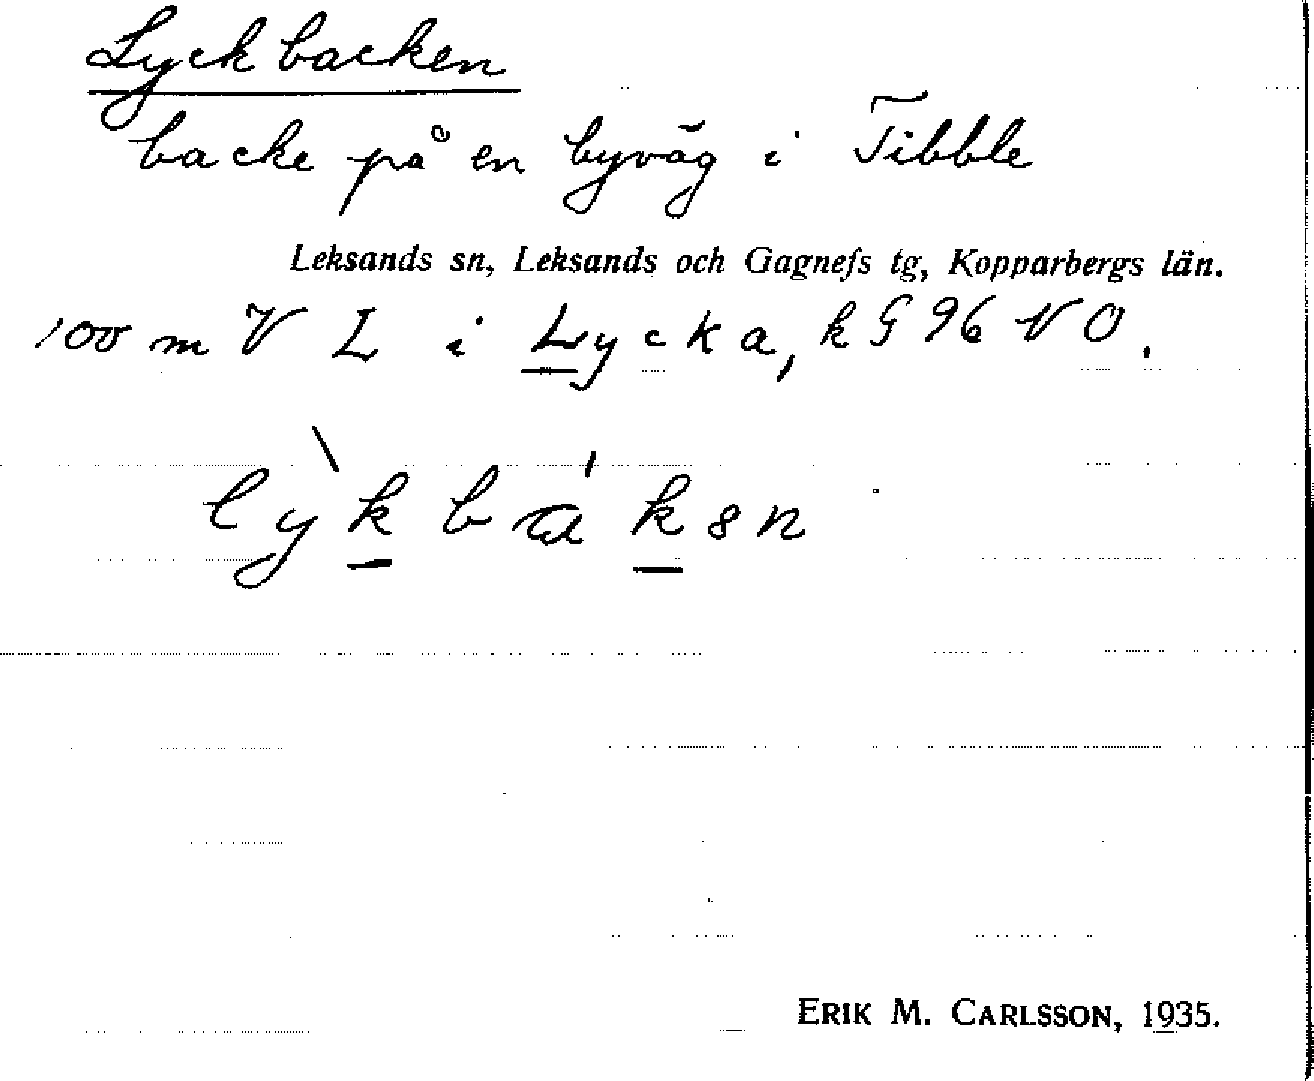 Lyckbacken
backe på en byväg i Tibble
Leksands sn, Leksands och Gagnefs tg, Kopparbergs län.
100 m V L i Lycka, k G 96 NO.
lỳk bákən
ERIK M. CARLSSON, 1935.